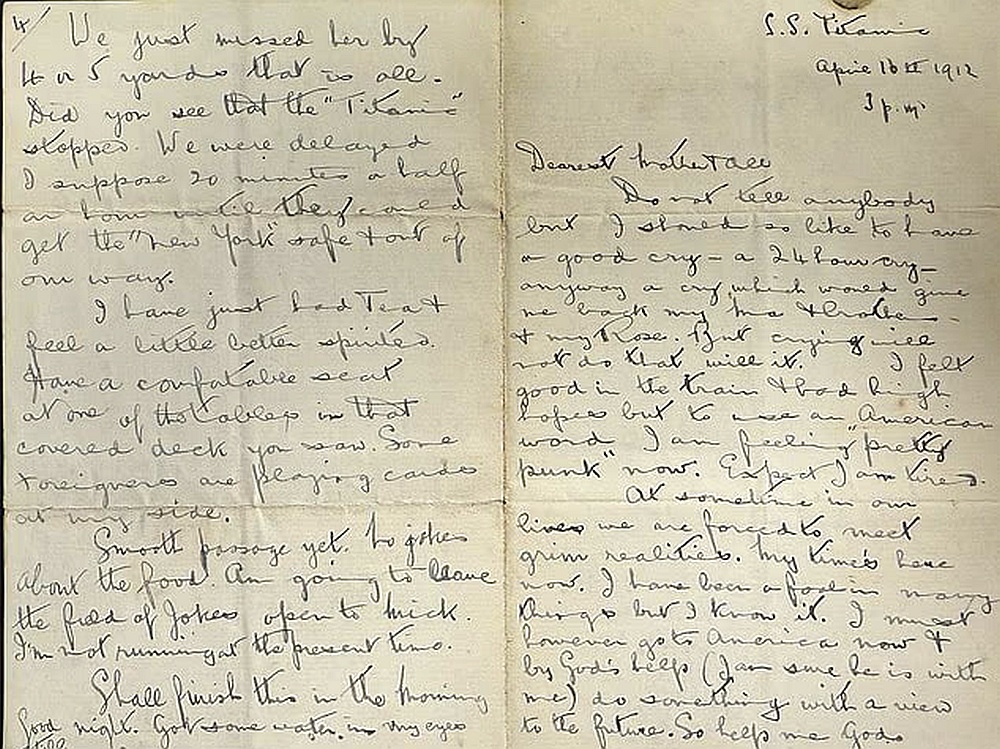 S.S. Titanic
April 10th 1912
3 p.m.
Dearest Mother & all
Do not tell anybody
but I should so like to have
a good cry – a 24 hour cry –
anyway a cry which would give
me back my Ma & brother –
& my Rose. But crying will
not do that will it. I felt
good in the train & had high
hopes but to use an American
word I am feeling "pretty
punk" now. Expect I am tired.
At sometime in our
lives we are forced to meet
grim realities. My time's here
now. I have been a fool in many
things but I know it. I must
however go to America now &
by God's help (I am sure he is with
me) do something with a view
to the future. So help me God.
4/
We just missed her by
4 or 5 yards that is all.
Did you see that the "Titanic"
stopped. We were delayed
I suppose 20 minutes a half
an hour until they could
get the "New York" safe & out of
our way.
I have just had Tea &
feel a little better spirited.
Have a comfatable seat
at one of the tables in that
covered deck you saw. Some
Foreigners are playing cards
at my side.
Smooth passage yet. No jokes
about the food. Am going to leave
the field of Jokes open to Mick.
I'm not running at the present time.
Shall finish this in the Morning
Good night. Got some water in my eyes
still